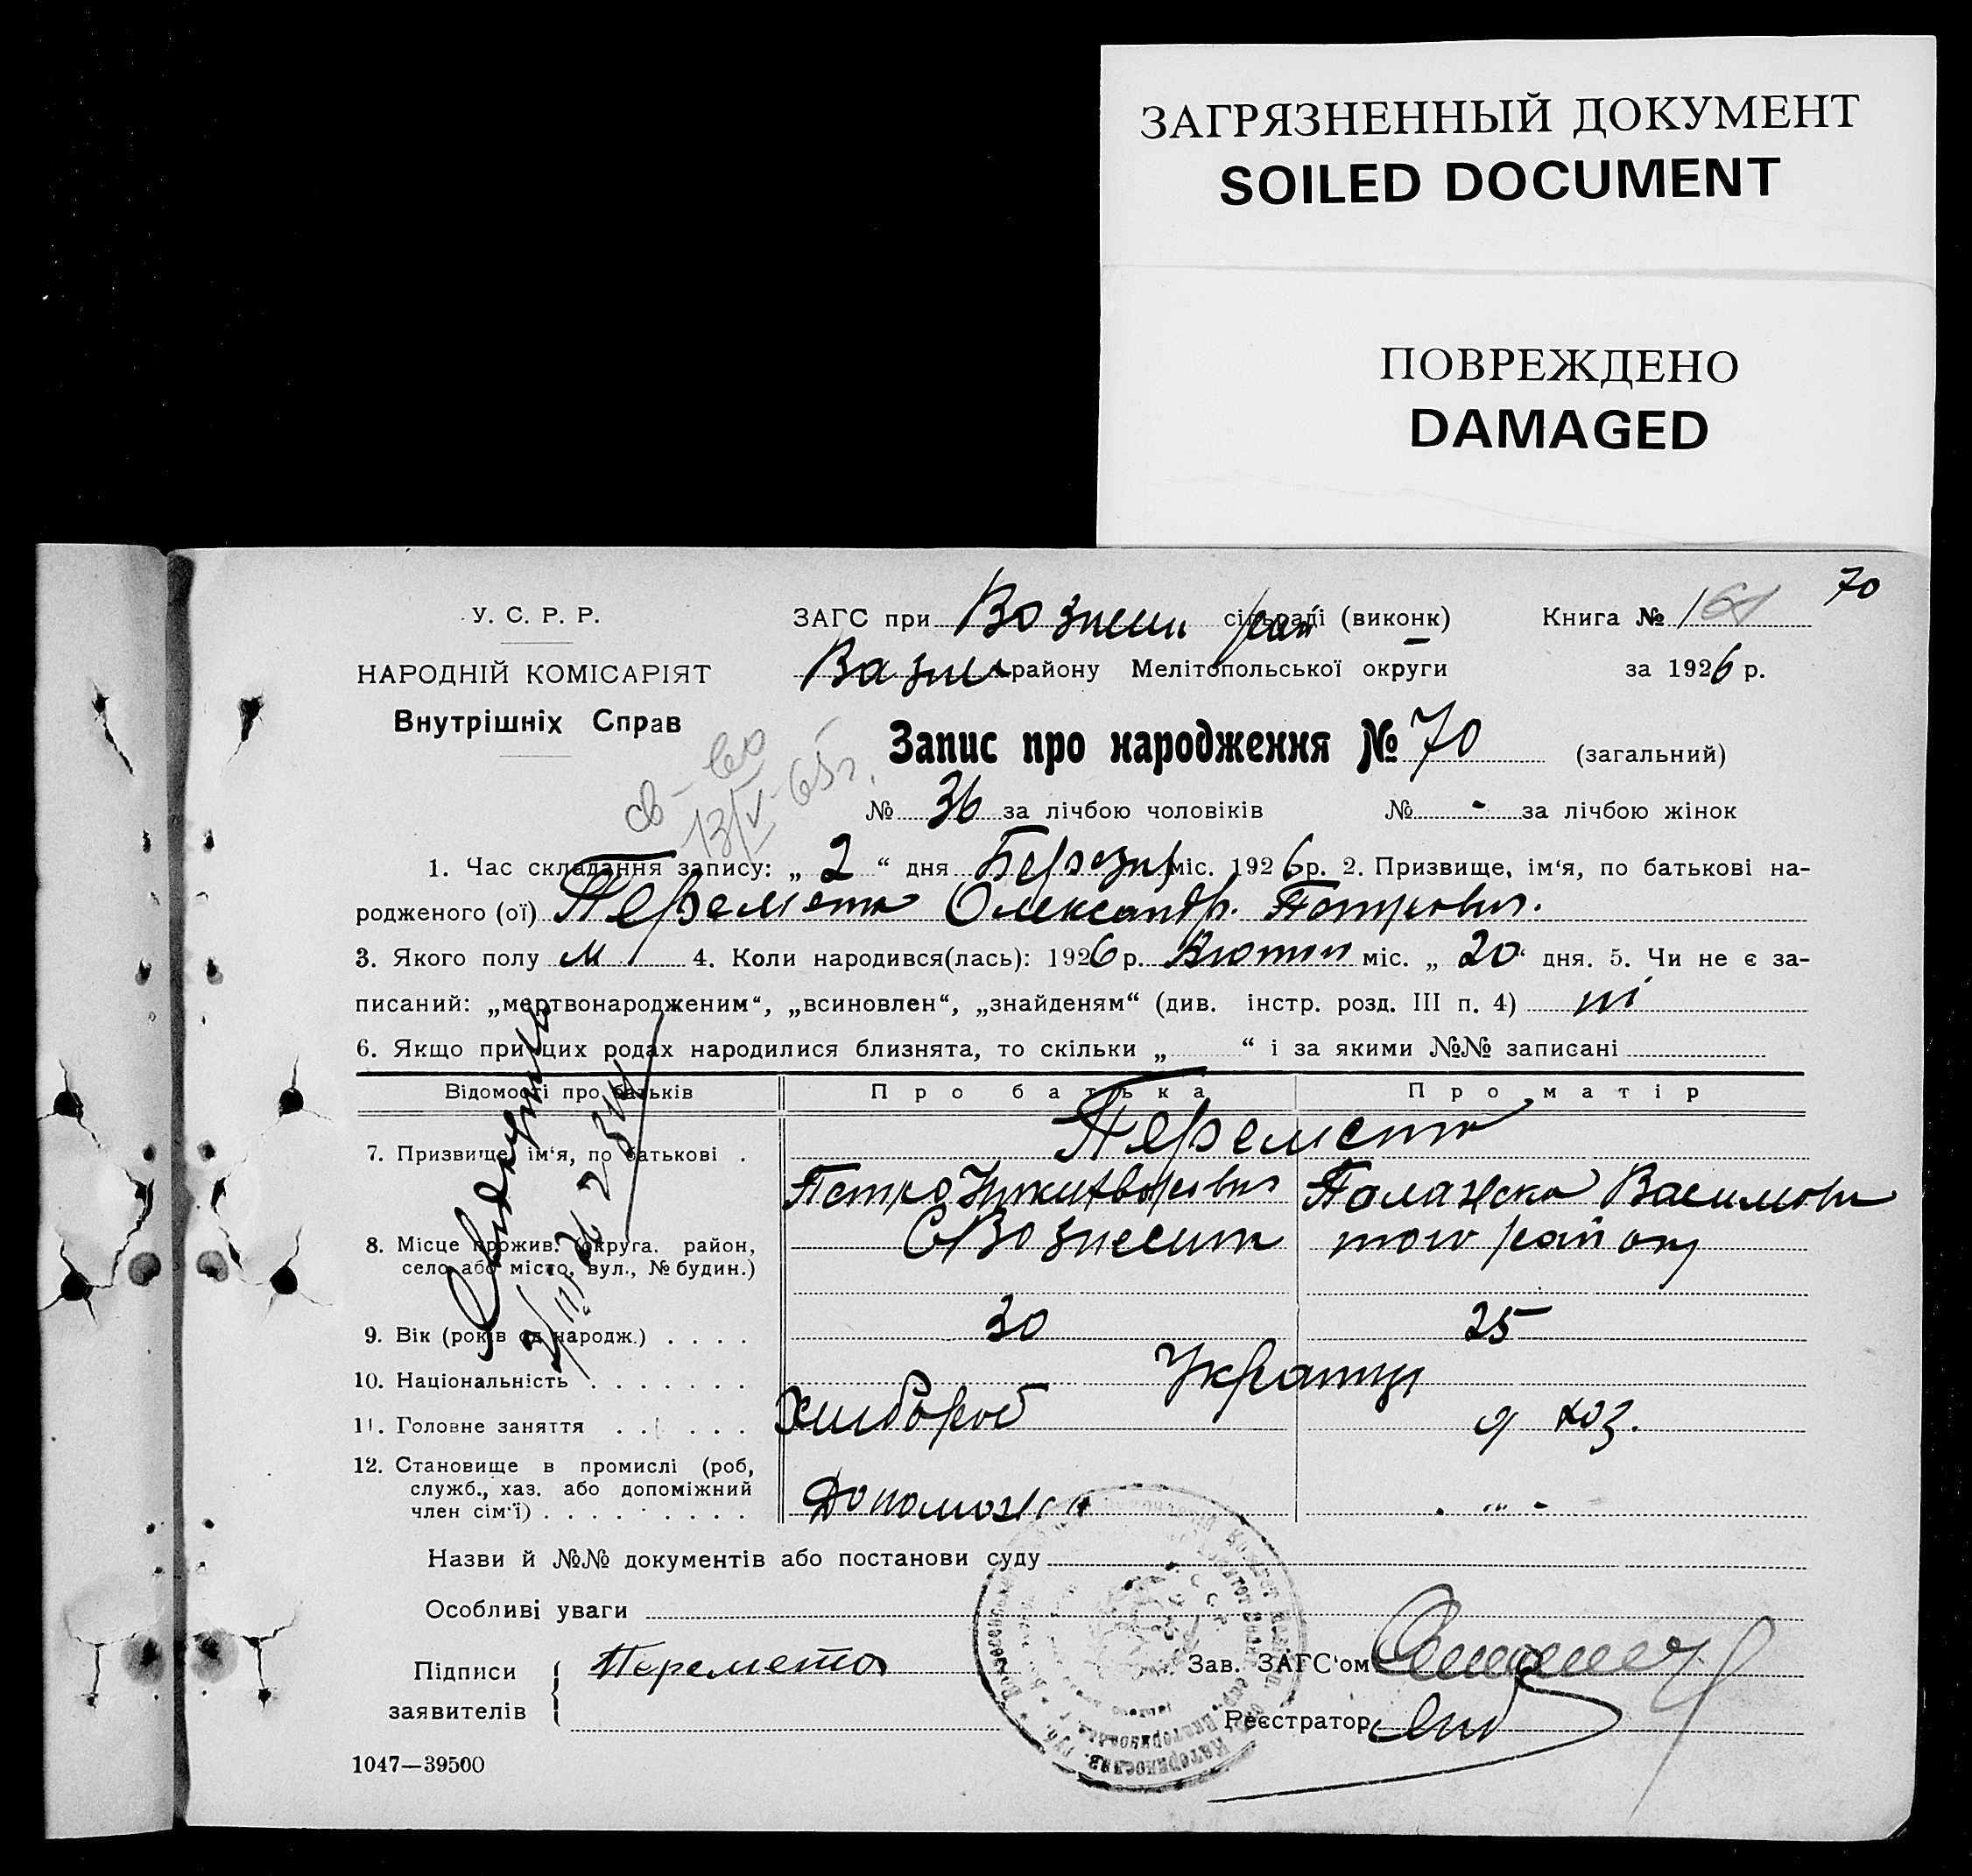 ЗАГРЯЗНЕННЫЙ ДОКУМЕНТ
SOILED DOCUMENT
ПОВРЕЖДЕНО
DAMAGED
70
У. С. Р. Р.
НАРОДНІЙ КОМІСАРІЯТ
Внутрішніх Справ
ЗАГС при Вознесен рай сільраді (виконк)
району Мелітопольської округи
Книга № 161
за 1926 р.
Запис про народження № 70 (загальний)
№ 36 за лічбою чоловіків № - за лічбою жінок
1. Час складання запису: „ 2 “ дня Березня міс. 1926 р. 2. Призвище, ім‘я, по батькові на-
родженого (ої) Перемета Олександр. Петрович.
3. Якого полу м 4. Коли народився(лась): 1926 р. Лютий міс. „ 20 “ дня. 5. Чи не є за-
писаний: „мертвонародженим“, „всиновлен“, „знайденям“ (див. інстр. розд. III п. 4) ні
6. Якщо при цих родах народилися близнята, то скільки „ “ і за якими №№ записані
Відомості про батьків Про батька Про матір
7. Призвище, ім‘я, по батькові . Перемета
Петро Василовн
8. Місце прожив. (округа. район,
село або місто, вул., № будин.)
С Вознесенка того району
9. Вік (років од народж.) . . . . 30 25
10. Національність . . . . . . . Українці
11. Головне заняття . . . . . . Хлібороб д хоз.
12. Становище в промислі (роб,
служб., хаз. або допоміжний
член сім‘ї) . . . . . . . . . Допоміжн - „ -
Назви й №№ документів або постанови суду
Особливі уваги
Підписи
заявителів
Перемета
Зав. ЗАГС‘ом
Реєстратор
1047—39500
св-во
13/V-65 г.